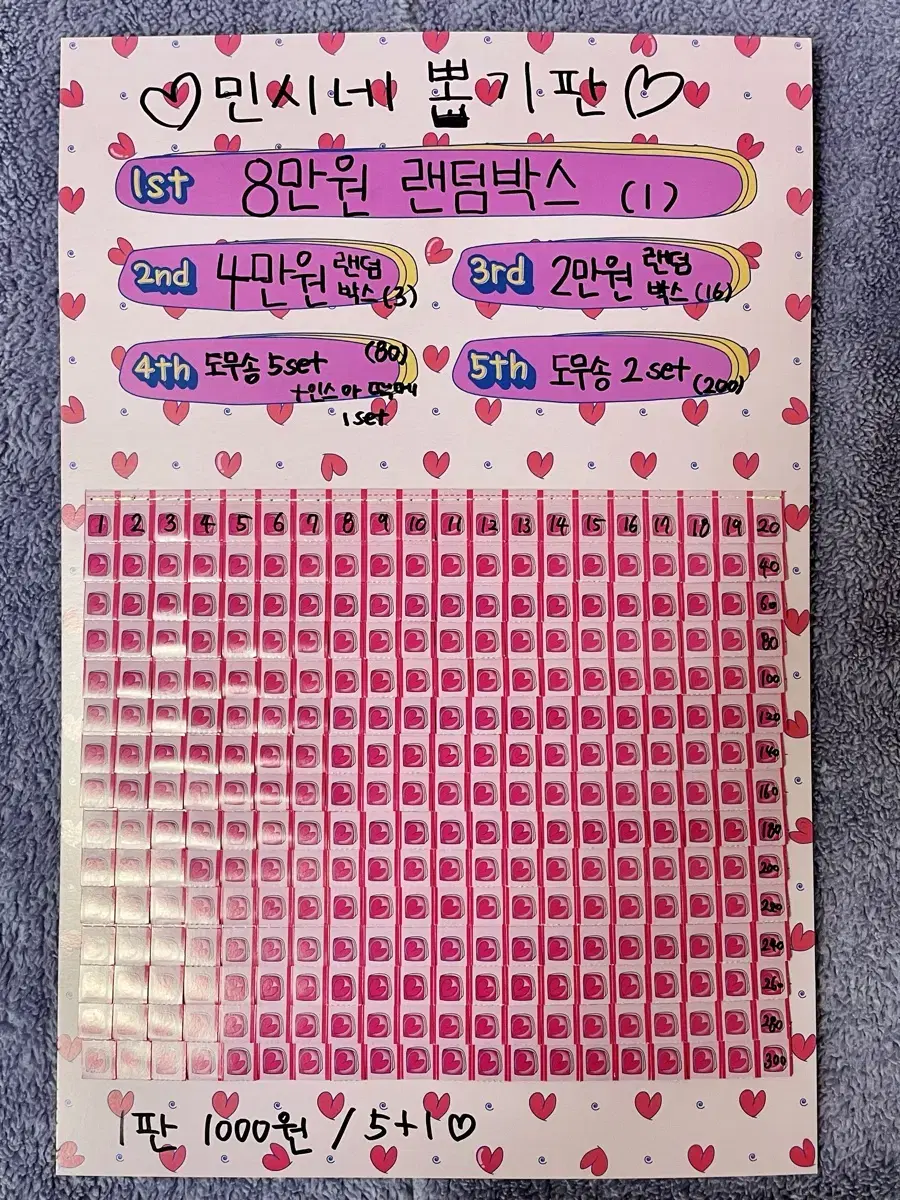 ♡민시네 뽑기판♡
1st 8만원 랜덤박스 (1)
2nd 4만원 랜덤박스 (3)
3rd 2만원 랜덤박스 (16)
4th 도무송 5set (80)
+인스 or 떡메
1set
5th 도무송 2set (200)
1 2 3 4 5 6 7 8 9 10 11 12 13 14 15 16 17 18 19 20
40
60
80
100
120
140
160
180
200
220
240
260
280
300
1판 1000원 / 5+1♡